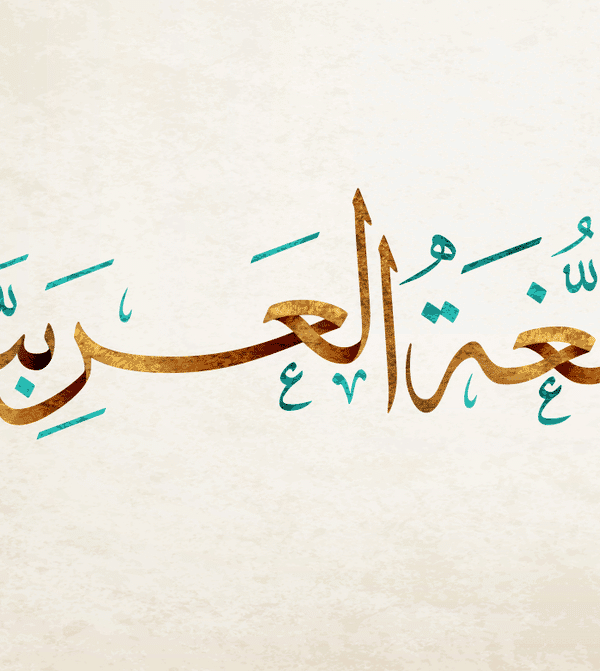 غَةُ العَرَبِيَّ